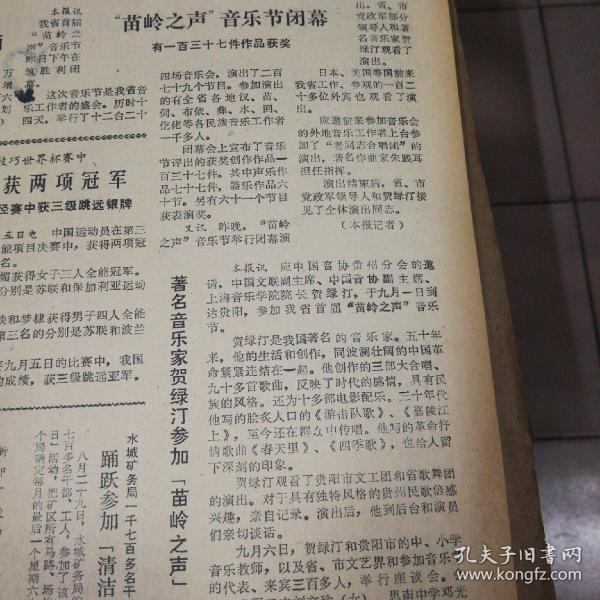 “苗岭之声”音乐节闭幕
有一百三十七件作品获奖
本报讯
我省首届
“苗岭之
声”音乐节
昨日下午在
筑胜利闭
幕。
这次音乐节是我省音
乐工作者的盛会。历时十
四天，举行了十二台二十
四场音乐会，演出了二百
七十九个节目。参加演出
的有全省各地汉、苗、
侗、布依、彝、水、回、
仡佬等各民族音乐工作者
一千多人。
闭幕会上宣布了音乐
节评出的获奖创作作品一
百三十七件。其中声乐作
品七十七件，器乐作品六
十节。另有六十一个节目
获表演奖。
又讯 昨晚，“苗岭
之声”音乐节举行闭幕演
出。省、市
党政军部分
领导人和著
名音乐家贺
绿汀观看了
演出。
日本、美国等国前来
我省工作、参观的一百二
十多位外宾也观看了演
出。
应邀前来参加音乐会
的外地音乐工作者上台参
加了“老同志合唱团”的
演出，著名作曲家朱践耳
担任指挥。
演出结束后，省、市
党政军领导人和贺绿汀接
见了全体演出同志。
（本报记者）
技巧世界杯赛中
获两项冠军
径赛中获三级跳远银牌
五日电 中国运动员在第三
能项目决赛中，获得两项冠
媚获得女子三人全能冠军。
分别是苏联和保加利亚运动
秧和梦棣获得男子四人全能
第三名的分别是苏联和波兰
赛九月五日的比赛中，我国
的成绩，获三级跳远亚军。
著名音乐家贺绿汀参加「苗岭之声」
本报讯 应中国音协贵州分会的邀
请，中国文联副主席、中国音协副主席、
上海音乐学院院长贺绿汀，于九月一日到
达贵阳，参加我省首届“苗岭之声”音乐
节。
贺绿汀是我国著名的音乐家。五十年
来，他的生活和创作，同波澜壮阔的中国革
命紧紧连结在一起。他创作的三部大合唱、
九十多首歌曲，反映了时代的感情，具有民
族的风格。还为十多部电影配乐。三十年代
他写的脍炙人口的《游击队歌》、《嘉陵江
上》，至今还在群众中传唱。他写的革命抒
情歌曲《春天里》、《四季歌》，也给人留
下深刻的印象。
贺绿汀观看了贵阳市文工团和省歌舞团
的演出。对于具有独特风格的贵州民歌倍感
兴趣，亲自记录。演出后，他到后台和演员
们亲切谈话。
九月六日，贺绿汀和贵阳市的中、小学
音乐教师，以及省、市文艺界和参加音乐节
的代表、来宾三百多人，举行座谈会。
水城矿务局一千七百多名干
踊跃参加「清洁
八月二十九日，水城矿务局的
七百多名干部、工人，参加了该
日」活动，把矿区所有马路、场
个局确定每月的最后一个星期六
孔夫子旧书网
www.kongfz.com